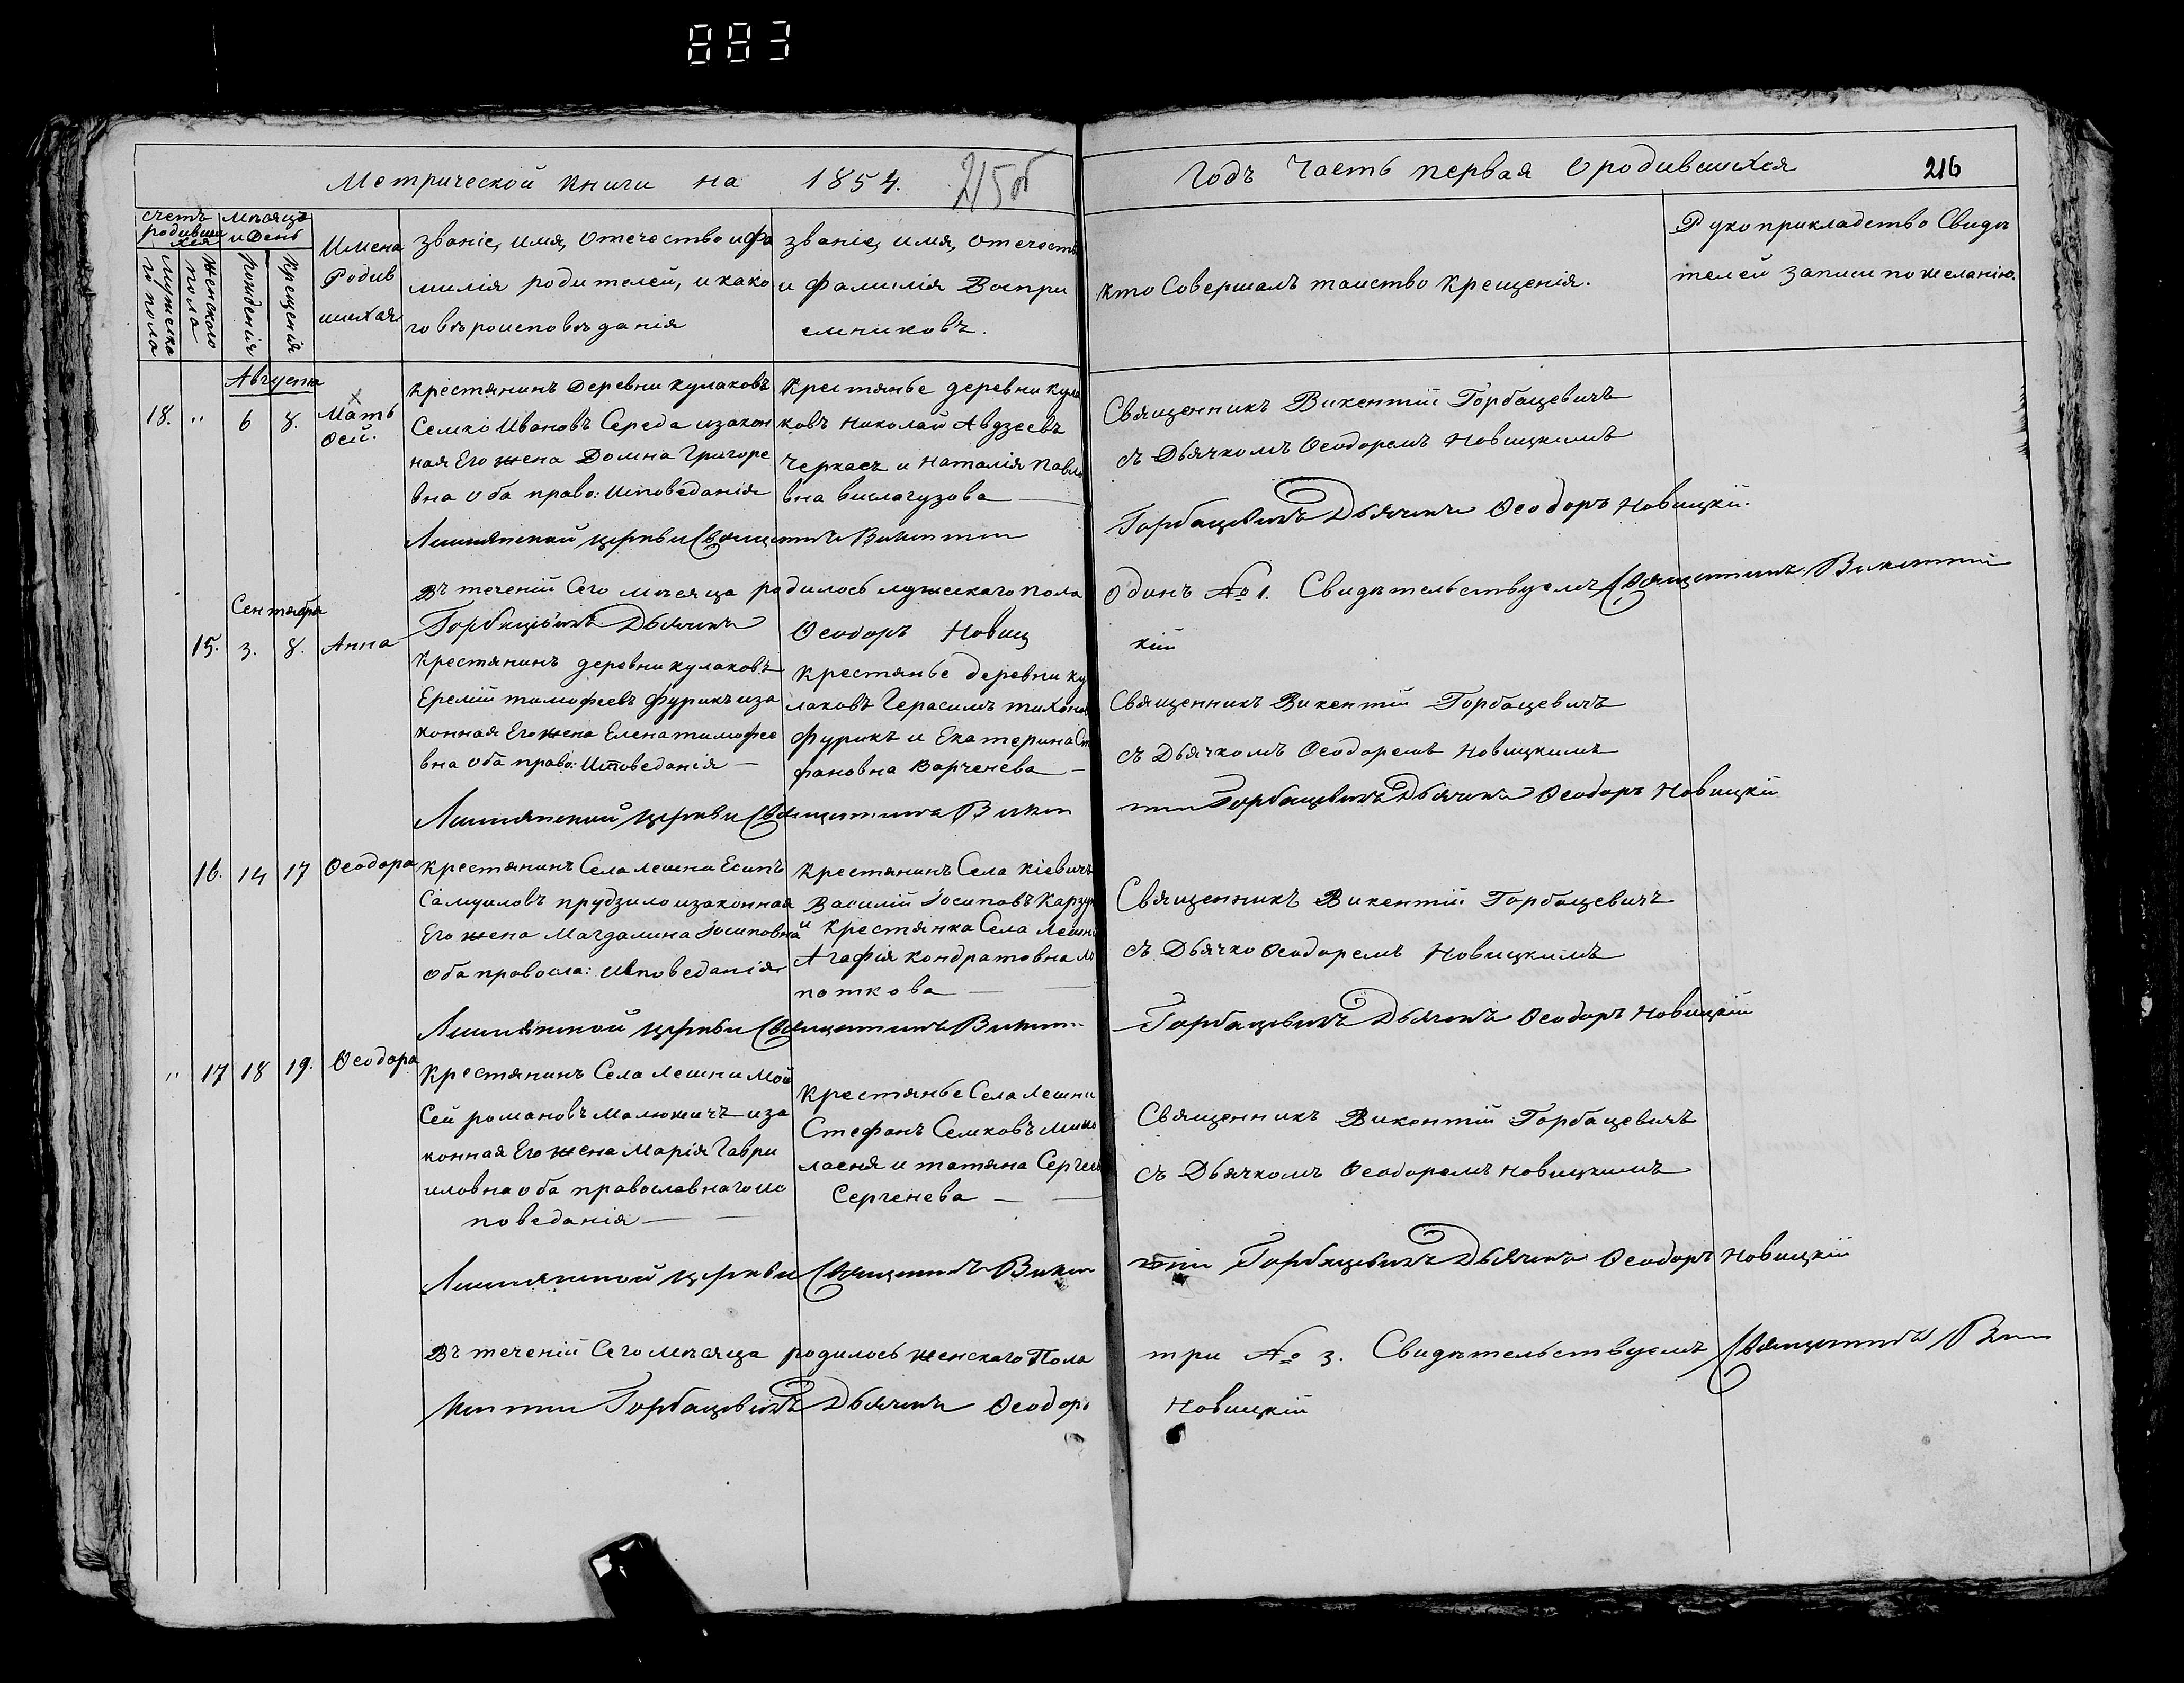 883
Метрической книги на 1854.
215об
Годъ Часть первая О родившихся
216
счетъ родивши хся
Мужеска го пола
женского пола
Мѣсяцъ и День
рожденія
Крещенія
Имена Родив шихся
званіе, имя, Отечество и фа
милія родителей, и како
го вѣроисповѣданія
званіе, имя, отечество
и фамилія Воспри
емниковъ.
кто Совершалъ таинство Крещенія.
Рукоприкладство Свидѣ
телей записи по желанію.
Августа
18. " 6 8. Мать
ѳей.
Крестянинъ Деревни кулаковъ
Семко Ивановъ Середа и закон
ная Его жена Домна Григоре
вна оба право: Исповеданія
Крестянье деревни кула
ковъ Николай Авдзеевъ
Черкасъ и Наталія Павло
вна вислагузова
Священникъ Викентій Горбацевичъ
съ Дьячкомъ Ѳеодоромъ Новицкимъ
Лешнянской церкви Священникъ Викентій
Горбацевичъ Дьячекъ Ѳеодоръ Новицкій.
Въ теченій Сего мѣсяца родилось мужескаго пола
одинъ № 1. Свидѣтельствуемъ Священникъ Викентій
Горбацевичъ Дьячекъ Ѳеодоръ Новиц
кій
Сентября
15. 3. 8. Анна
Крестянинъ деревни кулаковъ
Еремій тимофеевъ фурикъ и за
конная Его жена Елена тимофее
вна оба право: Исповеданія
Крестянье деревни ку
лаковъ Герасимъ тихонов
фурикъ и Екатерина Сте
фановна Варченева
Священникъ Викентій Горбацевичъ
съ Дьячкомъ Ѳеодоромъ Новицкимъ
Лешнянской церкви Священникъ Викен
тій Горбацевичъ Дьячекъ Ѳеодоръ Новицкій
16. 14 17 Ѳеодора
Крестянинъ Села лешни Есипъ
Самуиловъ прудзило и законная
Его жена Магдалина Іосиповна
оба правосла: Исповеданія
Крестянинъ Села Кіевичъ
Василій Іосиповъ Карзун
и Крестянка Села Лешни
Агафія кондратовна ло
поткова
Священникъ Викентій Горбацевичъ
съ Дьячко Ѳеодоромъ Новицкимъ
Лешнянской церкви Священникъ Викент
Горбацевичъ Дьячекъ Ѳеодоръ Новицкій
" 17 18 19. Ѳеодора
Крестянинъ Села Лешни Мой
сей романовъ Малюжичъ и за
конная Его жена Марія Гаври
иловна оба православнаго ис
поведанія
Крестянье Села Лешни
Стефанъ Семковъ Мико
лаеня и татяна Сергеев
Сергенева
Священникъ Викентій Горбацевичъ
съ Дьячкомъ Ѳеодоромъ Новицкимъ
Лешнянской церкви Священникъ Викен
тій Горбацевичъ Дьячекъ Ѳеодоръ Новицкій
Въ теченій Сего мѣсяца родилось женскаго Пола
три № 3. Свидѣтельствуемъ Священникъ Ви
кентій Горбацевичъ Дьячекъ Ѳеодоръ
Новицкій